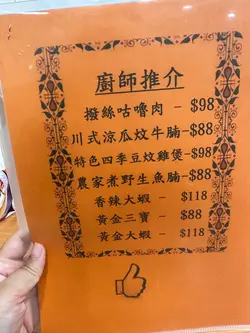 廚師推介
撥絲咕嚕肉 - $98
川式涼瓜炆牛腩 - $88
特色四季豆炆雞煲 - $98
農家煮野生魚腩 - $88
香辣大蝦 - $118
黃金三寶 - $88
黃金大蝦 - $118